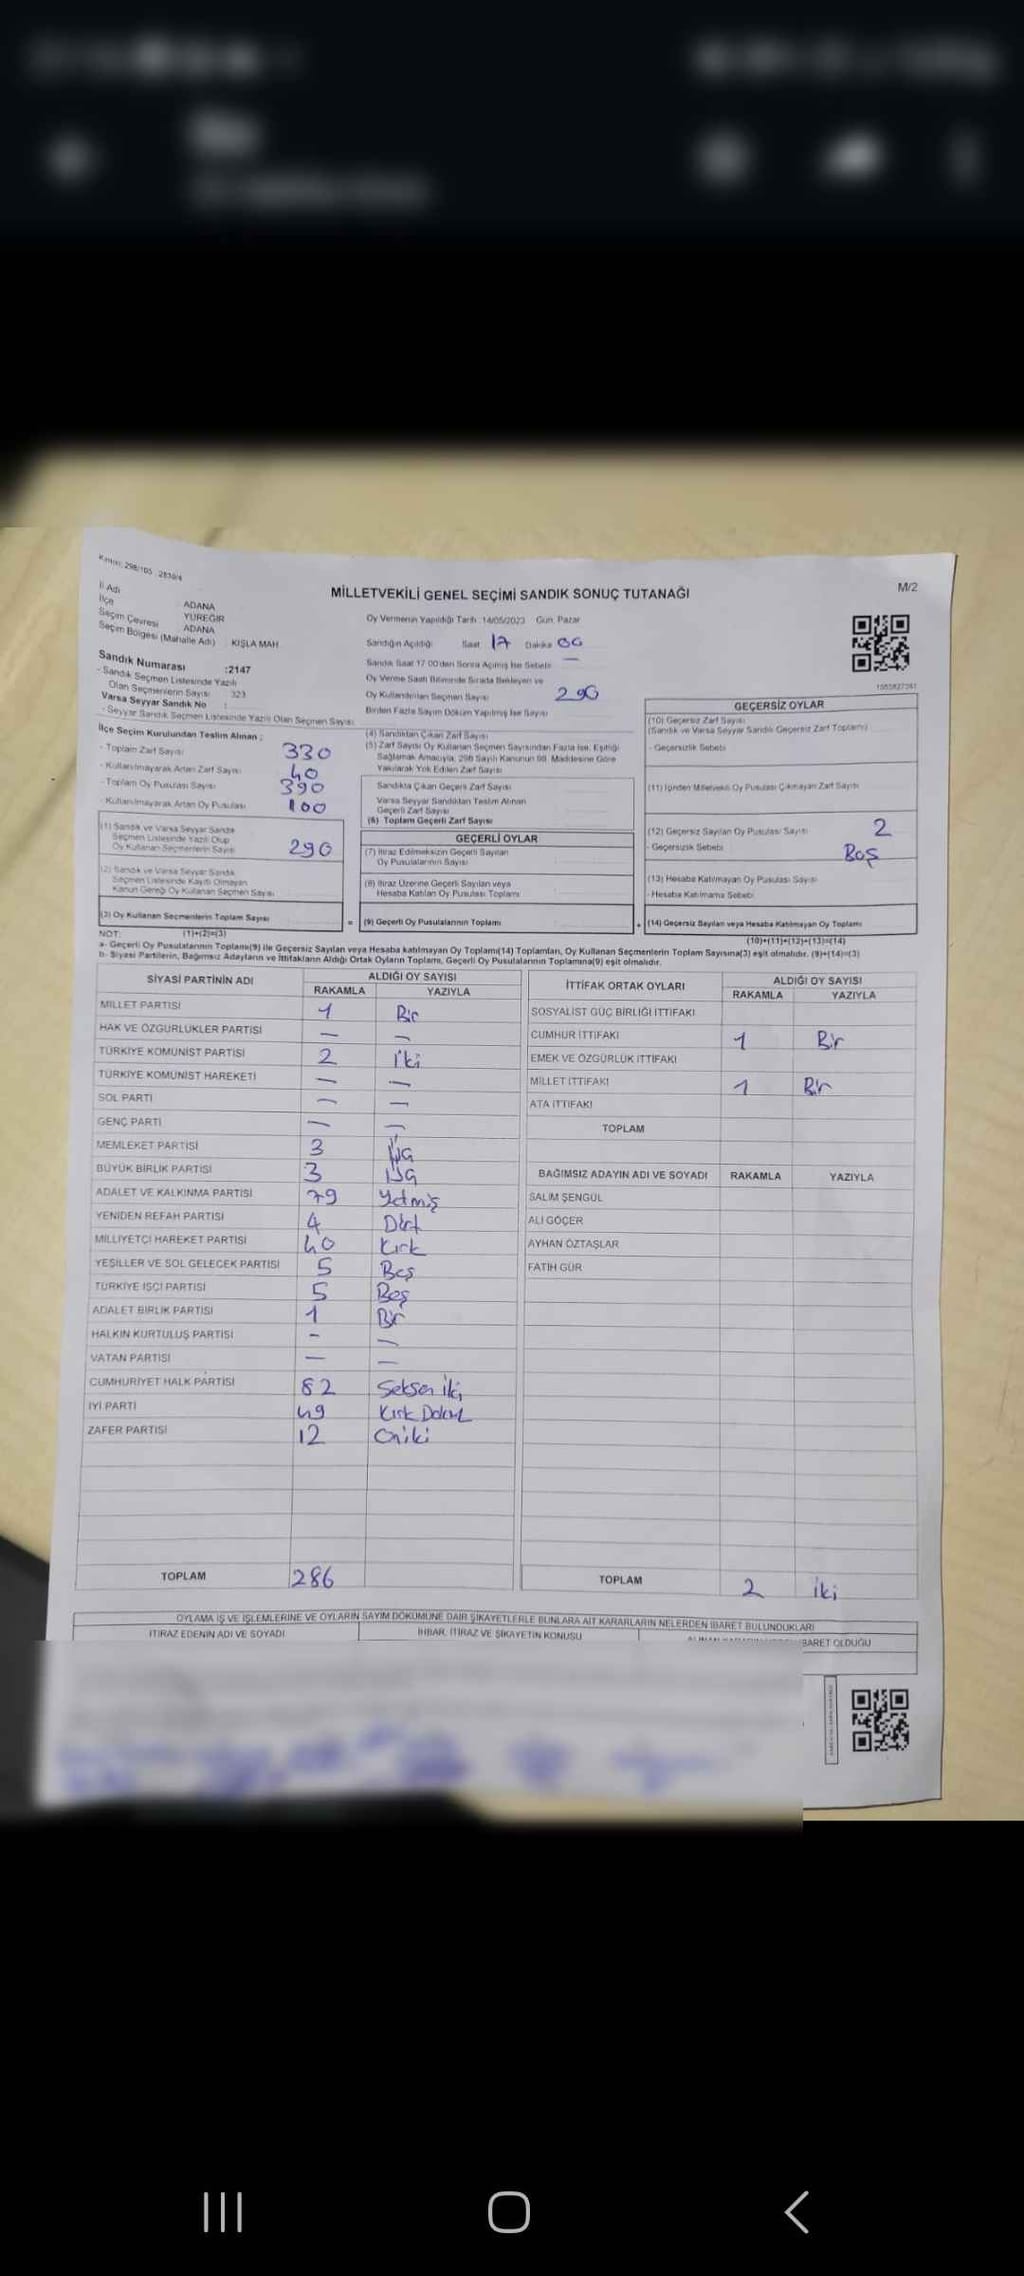 MİLLETVEKİLİ GENEL SEÇİMİ SANDIK SONUÇ TUTANAĞI
M/2
İl Adı ADANA
İlçe YÜREĞİR
Seçim Çevresi ADANA
Seçim Bölgesi (Mahalle Adı) KIŞLA MAH
Oy Vermenin Yapıldığı Tarih :14/05/2023 Gün: Pazar
Sandığın Açıldığı Saat 17 Dakika 00
Sandık Saat 17.00'den Sonra Açılmış İse Sebebi —
Oy Verme Saati Bitiminde Sırada Bekleyen ve
Oy Kullandırılan Seçmen Sayısı 290
Birden Fazla Sayım Döküm Yapılmış İse Sayısı
Sandık Numarası :2147
- Sandık Seçmen Listesinde Yazılı
Olan Seçmenlerin Sayısı : 323
Varsa Seyyar Sandık No :
- Seyyar Sandık Seçmen Listesinde Yazılı Olan Seçmen Sayısı
İlçe Seçim Kurulundan Teslim Alınan ;
- Toplam Zarf Sayısı 330
- Kullanılmayarak Artan Zarf Sayısı 40
- Toplam Oy Pusulası Sayısı 390
- Kullanılmayarak Artan Oy Pusulası 100
(1) Sandık ve Varsa Seyyar Sandık
Seçmen Listesinde Yazılı Olup
Oy Kullanan Seçmenlerin Sayısı 290
(2) Sandık ve Varsa Seyyar Sandık
Seçmen Listesinde Kayıtlı Olmayan
Kanun Gereği Oy Kullanan Seçmen Sayısı
(3) Oy Kullanan Seçmenlerin Toplam Sayısı
(1)+(2)=(3)
(4) Sandıktan Çıkan Zarf Sayısı
(5) Zarf Sayısı Oy Kullanan Seçmen Sayısından Fazla İse, Eşitliği
Sağlamak Amacıyla, 298 Sayılı Kanunun 98. Maddesine Göre
Yakılarak Yok Edilen Zarf Sayısı
Sandıkta Çıkan Geçerli Zarf Sayısı
Varsa Seyyar Sandıktan Teslim Alınan
Geçerli Zarf Sayısı
(6) Toplam Geçerli Zarf Sayısı
GEÇERLİ OYLAR
(7) İtiraz Edilmeksizin Geçerli Sayılan
Oy Pusulalarının Sayısı
(8) İtiraz Üzerine Geçerli Sayılan veya
Hesaba Katılan Oy Pusulası Toplamı
= (9) Geçerli Oy Pusulalarının Toplamı
GEÇERSİZ OYLAR
(10) Geçersiz Zarf Sayısı
(Sandık ve Varsa Seyyar Sandık Geçersiz Zarf Toplamı)
- Geçersizlik Sebebi
(11) İçinden Milletvekili Oy Pusulası Çıkmayan Zarf Sayısı
(12) Geçersiz Sayılan Oy Pusulası Sayısı 2
- Geçersizlik Sebebi Boş
(13) Hesaba Katılmayan Oy Pusulası Sayısı
- Hesaba Katılmama Sebebi
+ (14) Geçersiz Sayılan veya Hesaba Katılmayan Oy Toplamı
(10)+(11)+(12)+(13)=(14)
NOT:
a- Geçerli Oy Pusulalarının Toplamı(9) ile Geçersiz Sayılan veya Hesaba katılmayan Oy Toplamı(14) Toplamları, Oy Kullanan Seçmenlerin Toplam Sayısına(3) eşit olmalıdır. (9)+(14)=(3)
b- Siyasi Partilerin, Bağımsız Adayların ve İttifakların Aldığı Ortak Oyların Toplamı, Geçerli Oy Pusulalarının Toplamına(9) eşit olmalıdır.
SİYASİ PARTİNİN ADI ALDIĞI OY SAYISI
RAKAMLA YAZIYLA
MİLLET PARTİSİ 1 Bir
HAK VE ÖZGÜRLÜKLER PARTİSİ — —
TÜRKİYE KOMÜNİST PARTİSİ 2 İki
TÜRKİYE KOMÜNİST HAREKETİ — —
SOL PARTİ — —
GENÇ PARTİ — —
MEMLEKET PARTİSİ 3 Üç
BÜYÜK BİRLİK PARTİSİ 3 Üç
ADALET VE KALKINMA PARTİSİ 79 Yetmiş
YENİDEN REFAH PARTİSİ 4 Dört
MİLLİYETÇİ HAREKET PARTİSİ 40 Kırk
YEŞİLLER VE SOL GELECEK PARTİSİ 5 Beş
TÜRKİYE İŞÇİ PARTİSİ 5 Beş
ADALET BİRLİK PARTİSİ 1 Bir
HALKIN KURTULUŞ PARTİSİ - —
VATAN PARTİSİ — —
CUMHURİYET HALK PARTİSİ 82 Seksen İki
İYİ PARTİ 49 Kırk Dokuz
ZAFER PARTİSİ 12 Oniki
TOPLAM 286
İTTİFAK ORTAK OYLARI ALDIĞI OY SAYISI
RAKAMLA YAZIYLA
SOSYALİST GÜÇ BİRLİĞİ İTTİFAKI
CUMHUR İTTİFAKI 1 Bir
EMEK VE ÖZGÜRLÜK İTTİFAKI
MİLLET İTTİFAKI 1 Bir
ATA İTTİFAKI
TOPLAM
BAĞIMSIZ ADAYIN ADI VE SOYADI RAKAMLA YAZIYLA
SALİM ŞENGÜL
ALİ GÖÇER
AYHAN ÖZTAŞLAR
FATİH GÜR
TOPLAM 2 İki
OYLAMA İŞ VE İŞLEMLERİNE VE OYLARIN SAYIM DÖKÜMÜNE DAİR ŞİKAYETLERLE BUNLARA AİT KARARLARIN NELERDEN İBARET BULUNDUKLARI
İTİRAZ EDENİN ADI VE SOYADI İHBAR, İTİRAZ VE ŞİKAYETİN KONUSU